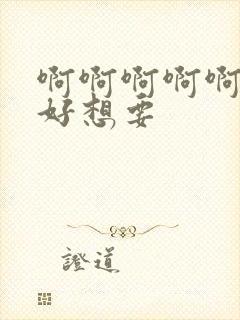 啊啊啊啊啊
好想要
證道